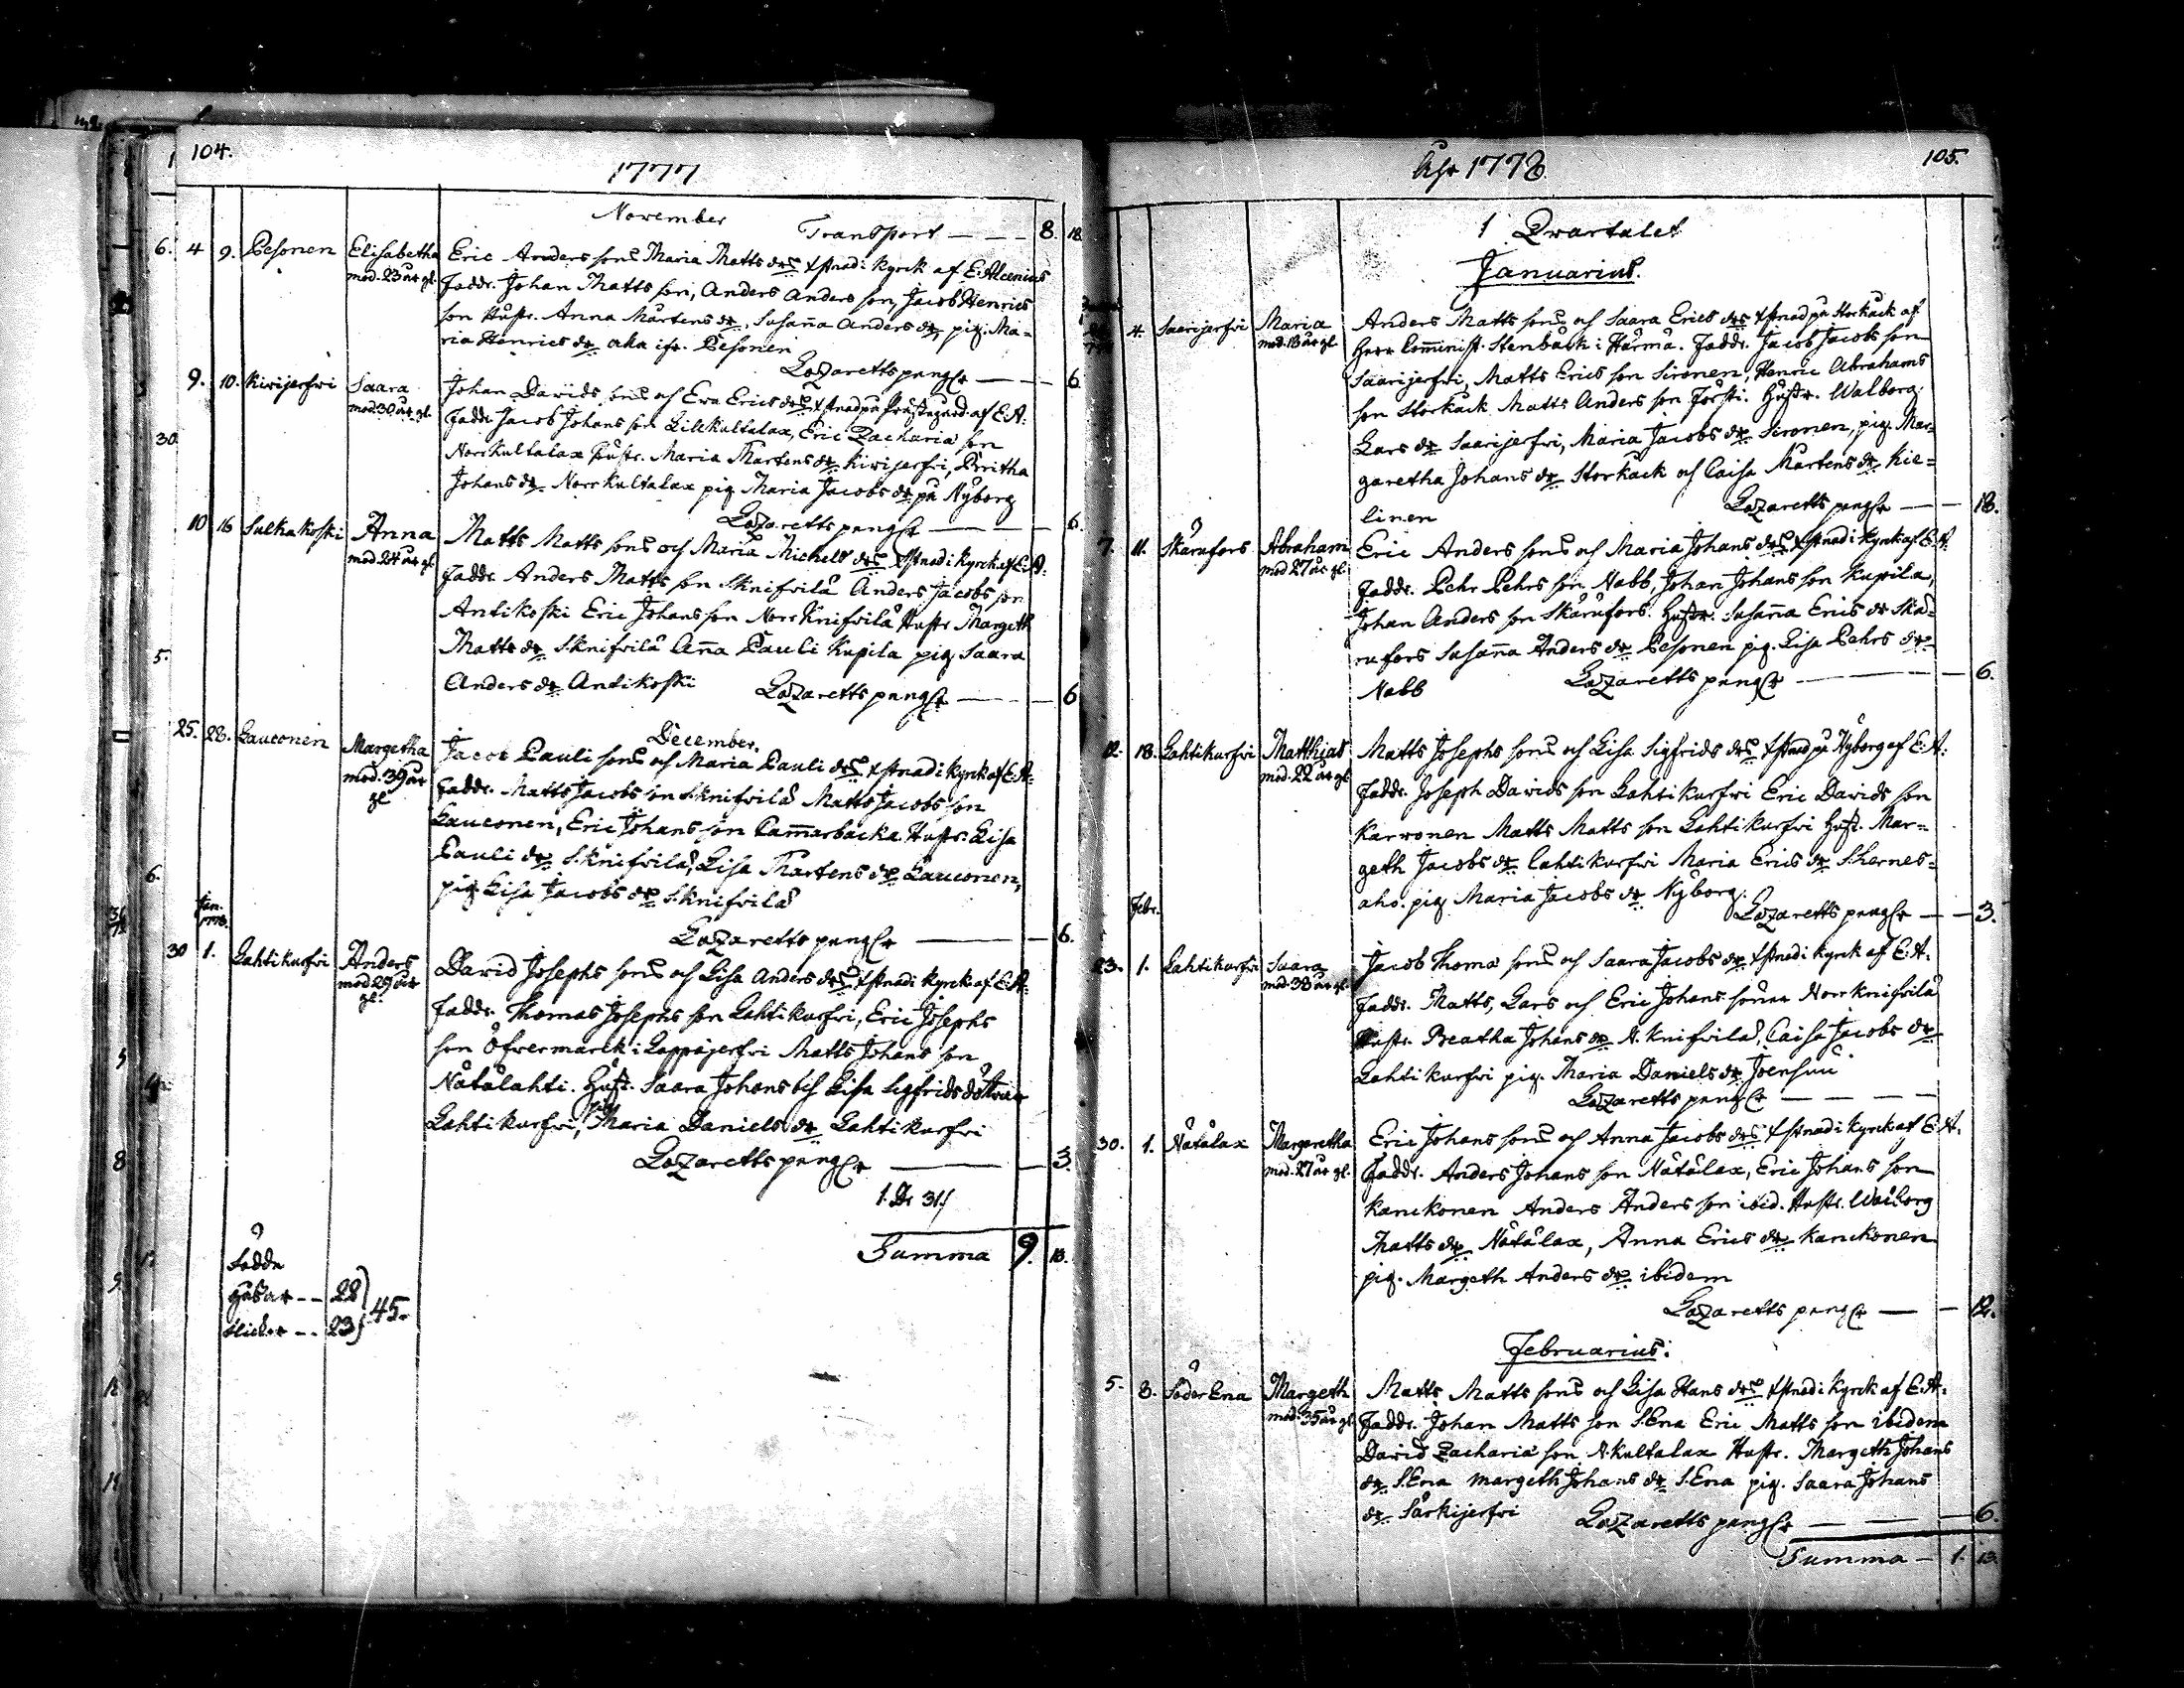 104.
1777
November
Transport — — — 8. 18.
4 9. Pesonen Elisabetha Eric Anders sons Maria Matts drs Xstnad i kyrck af E. Alcenius
mod. 23 år gl. Faddr. Johan Matts son, Anders Anders son, Jacob Henrics
son Hustr. Anna Mårtens dr, Susanna Anders dr, pig. Ma=
ria Henrics dr alla ifr. Pesonen
Lazarettspengr — — — 6
9. 10. Kivijerfvi Saara Johan Davids sons och Eva Erics drs Xstnad på Prästegård af E. A.
mod. 30 år gl. Faddr Jacob Johans son Lillkultalax, Eric Zachariæ son
Norrkultalax Hustr. Maria Martens dr Kivijerfvi, Britha
Johans dr Norrkultalax pig. Maria Jacobs dr på Nyborg
Lazarettspengr — — — 6.
10 16 Sulkakoski Anna Matts Matts sons och Maria Michels drs Xstnad i kyrck af E. A.
mod. 24 år gl. Faddr. Anders Matts son S.knifvilä Anders Jacobs son
Antikoski Eric Johansson Norrknifvilä Hustr Margeth
Matts dr S.knifvilä Anna Pauli Kupila pig Saara
Anders dr Antikoski Lazarettspengr — — — 6
December.
25. 28. Lauconen Margetha Jacob Pauli sons och Maria Pauli drs Xstnad i kyrck af E. A.
mod. 39 år Faddr. Matts Jacobs son S.knifvilä Matts Jacobs son
gl Lauconen, Eric Johans son Pammarbacka Hustr. Lisa
Pauli dr S.knifvilä, Lisa Martens dr Lauconen,
pig Lisa Jacobs dr S.knifvilä
Lazarettspengr — — 6.
Jan.
1778.
30 1. Lahtikurfvi Anders David Josephs sons och Lisa Anders drs Xstnad i kyrck af E. A.
mod 29 år Faddr. Thomas Josephs son Lahtikurfvi, Eric Josephs
gl. son Öfvermarck i Lappajerfvi Matts Johans son
Nätälahti. Hust. Saara Johans och Lisa Sigfrids döttrar
Lahtikurfvi, pig Maria Daniels dr Lahtikurfvi
Lazarettspengr — — 3.
1. Dr 31 /
Summa 9. 18.
Födde
Gåsar - - 22
Flickor - - 23 45.
105.
Åhr 1778
1 Qvartalet
Januarius.
4. Saarijerfvi Maria Anders Matts sons och Saara Erics drs Xstnad på Storkack af
mod. 18 år gl Herr Comminist. Stenbäck i Härmä. Faddr. Jacob Jacobs son
Saarijerfvi, Matts Erics son Sironen, Henric Abrahams
son Storkack Matts Anders son Torsti. Hustr. Walborg
Lars dr Saarijerfvi, Maria Jacobs dr Sironen, pig. Mar=
garetha Johans dr Storkack och Caisa Mårtens dr Kie=
linen Lazarettspengr — — 18.
7. 11. Skårufors Abraham Eric Anders sons och Maria Johans drs Xstnad i kyrck af E. A.
mod 27 år gl. Faddr. Pehr Pehrs son Nabb, Johan Johans son Kupila,
Johan Anders son Skårufors. Hustr. Susanna Erics dr Skå=
rufors Susanna Anders dr Pesonen pig. Lisa Pehrs dr
Nabb Lazarettspengr — — 6.
12. 18. Lahtikurfvi Matthias Matts Josephs sons och Lisa Sigfrids drs Xstnad på Nyborg af E. A.
mod. 22 år gl. Faddr. Joseph Davids son Lahtikurfvi Eric Davids son
Karvonen Matts Matts son Lahtikurfvi Hust. Mar=
geth Jacobs dr Lahtikurfvi Maria Erics dr S.hernes=
aho. pig Maria Jacobs dr Nyborg.
Lazarettspengr — — 3.
Febr.
23. 1. Lahtikurfvi Saara Jacob Thomæ sons och Saara Jacobs dr Xstnad i kyrck af E. A.
mod. 38 år gl. Faddr. Matts, Lars och Eric Johans söner Norrknifvilä
Hustr. Beatha Johans dr N.knifvilä, Caisa Jacobs dr
Lahtikurfvi pig. Maria Daniels dr Joensuu
Lazarettspengr — — — —
30. 1. Nätälax Margaretha Eric Johans sons och Anna Jacobs drs Xstnad i kyrck af E. A.
mod. 27 år gl. Faddr. Anders Johans son Nätälax, Eric Johans son
Kanckonen Anders Anders son ibid. Hustr. Walborg
Matts dr Nätälax, Anna Erics dr Kanckonen
pig. Margeth Anders dr ibidem
Lazarettspengr — — 12.
Februarius.
5. 8. Söder Ena Margeth Matts Matts sons och Lisa Hans drs Xstnad i kyrck af E. A.
mod. 35 år gl. Faddr. Johan Matts son S.Ena Eric Matts son ibidem
David Zachariæ son N.kultalax Hustr. Margeth Johans
dr S.Ena Margeth Johans dr S.Ena pig. Saara Johans
dr Särkijerfvi Lazarettspengr — — 6.
Summa — 1. 13.